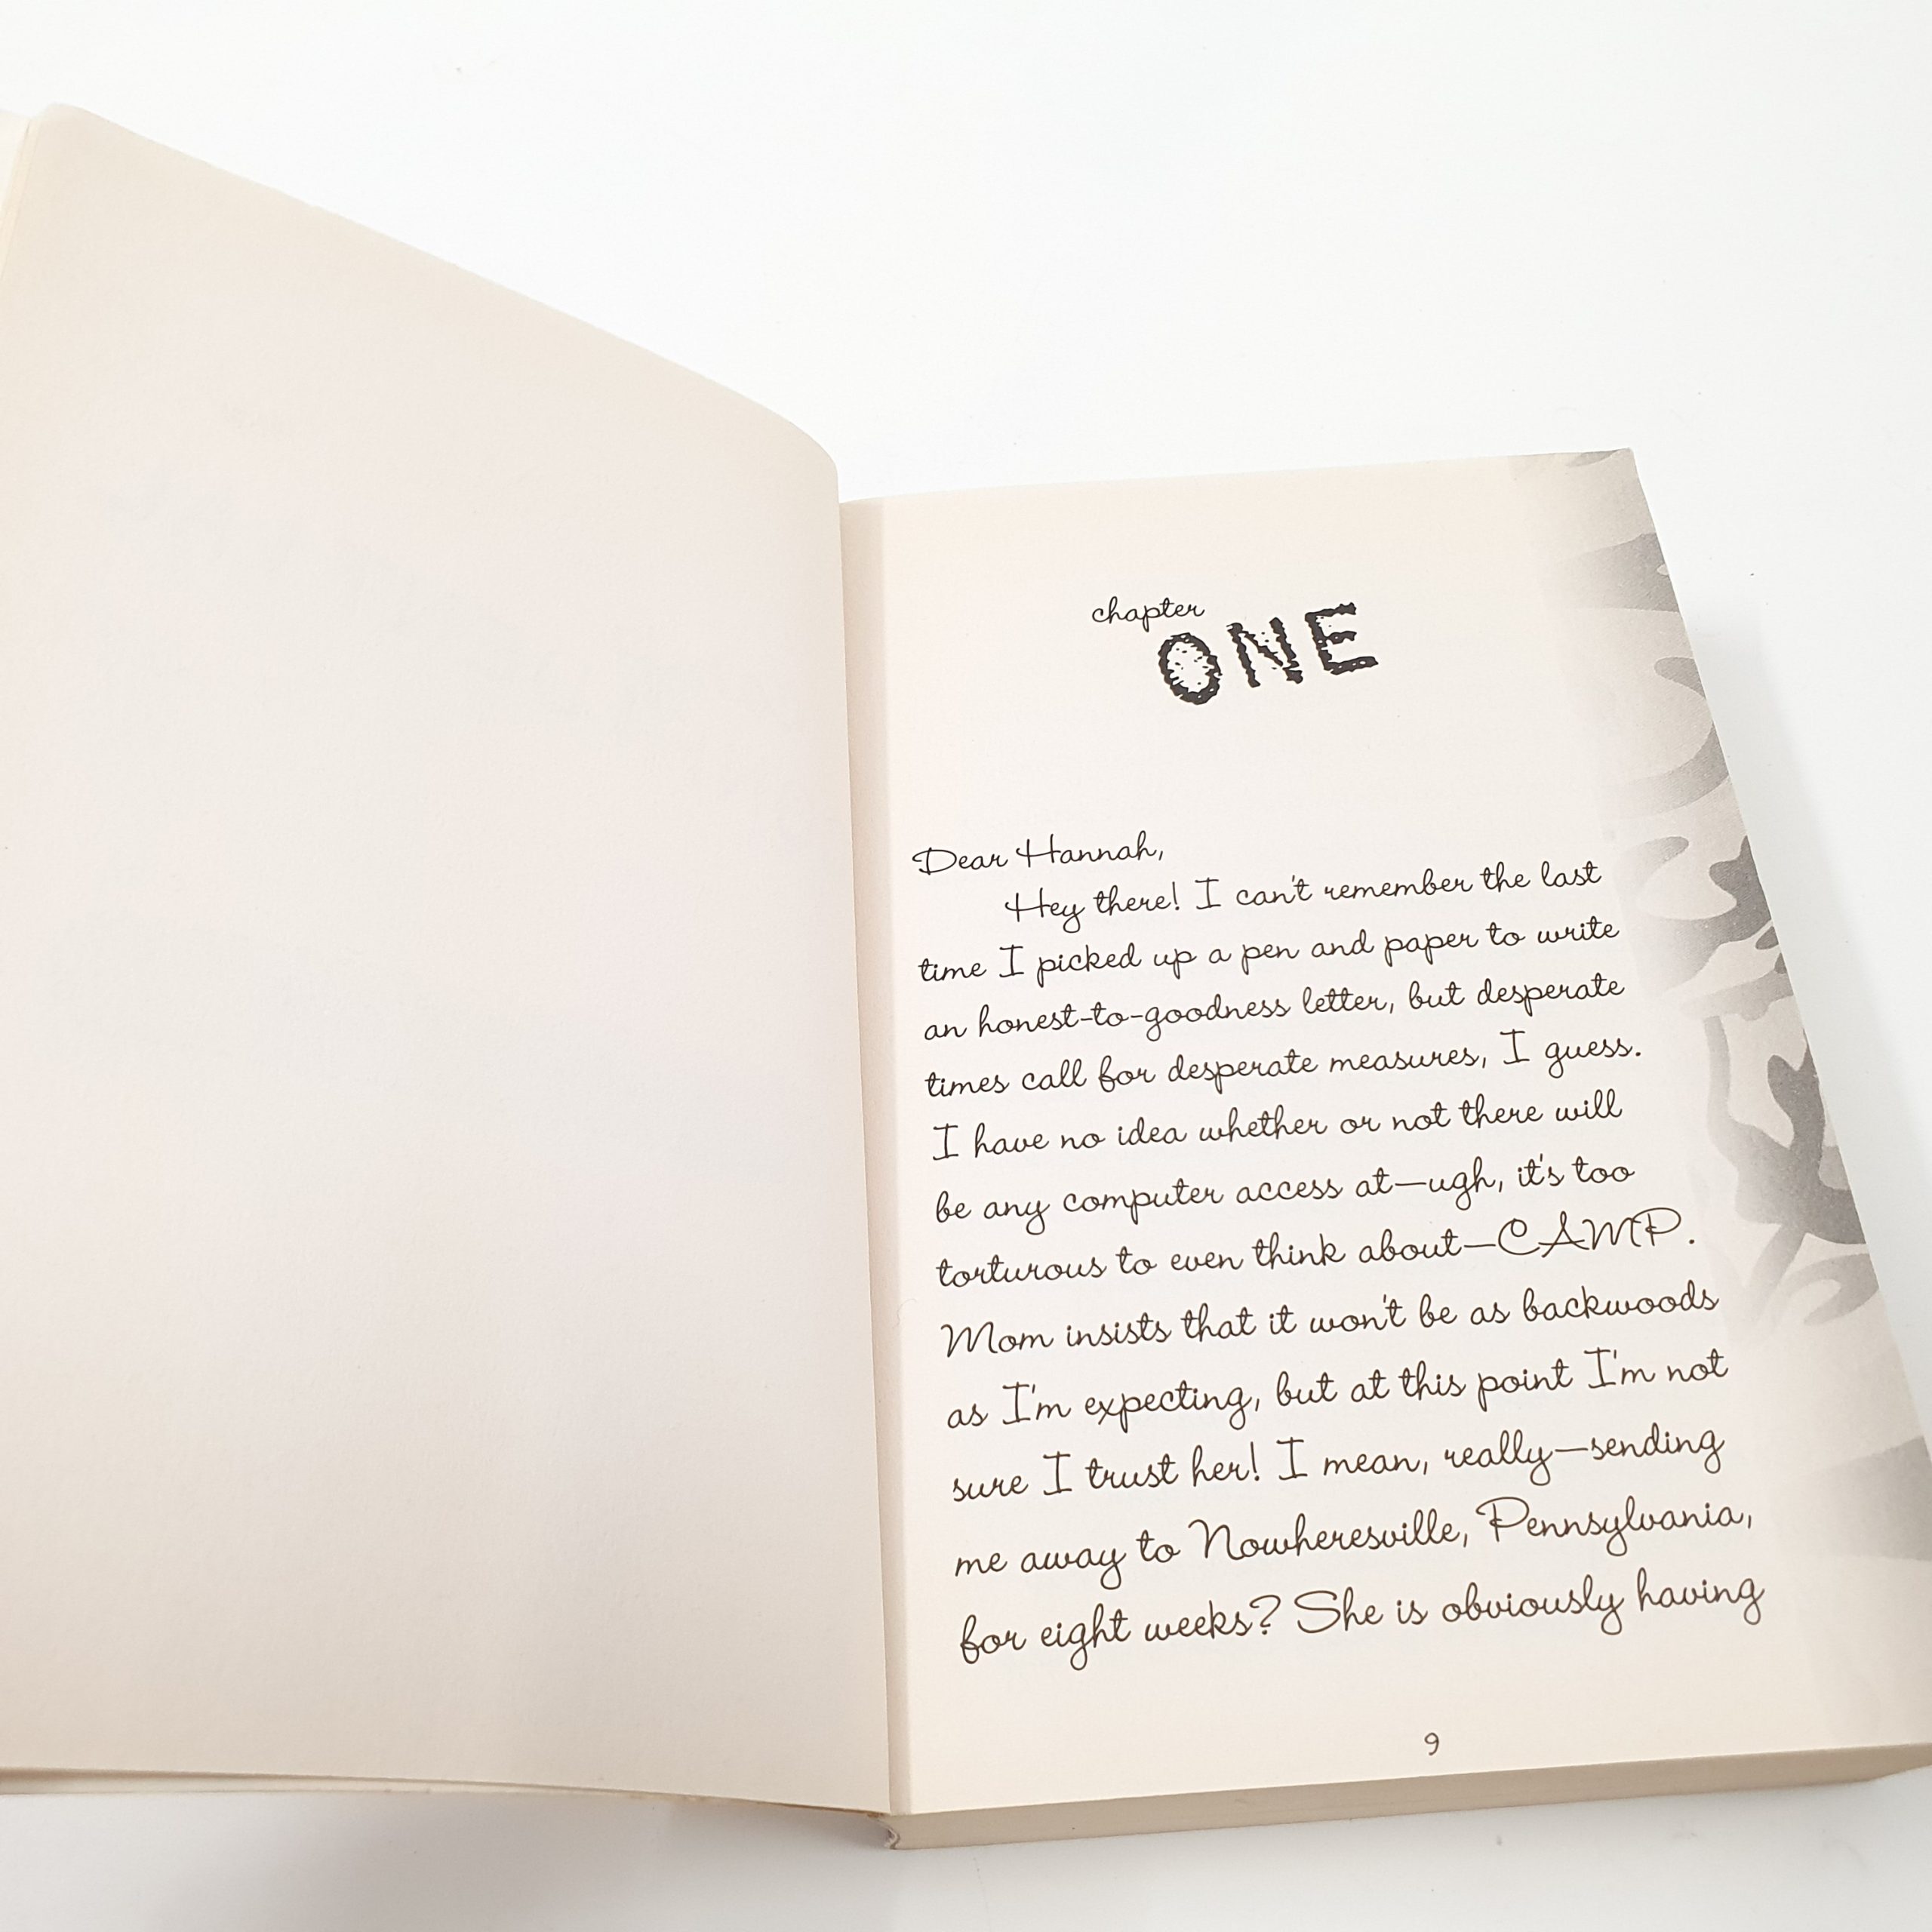 chapter
ONE
Dear Hannah,
Hey there! I can't remember the last
time I picked up a pen and paper to write
an honest-to-goodness letter, but desperate
times call for desperate measures, I guess.
I have no idea whether or not there will
be any computer access at—ugh, it's too
torturous to even think about—CAMP.
Mom insists that it won't be as backwoods
as I'm expecting, but at this point I'm not
sure I trust her! I mean, really—sending
me away to Nowheresville, Pennsylvania,
for eight weeks? She is obviously having
9